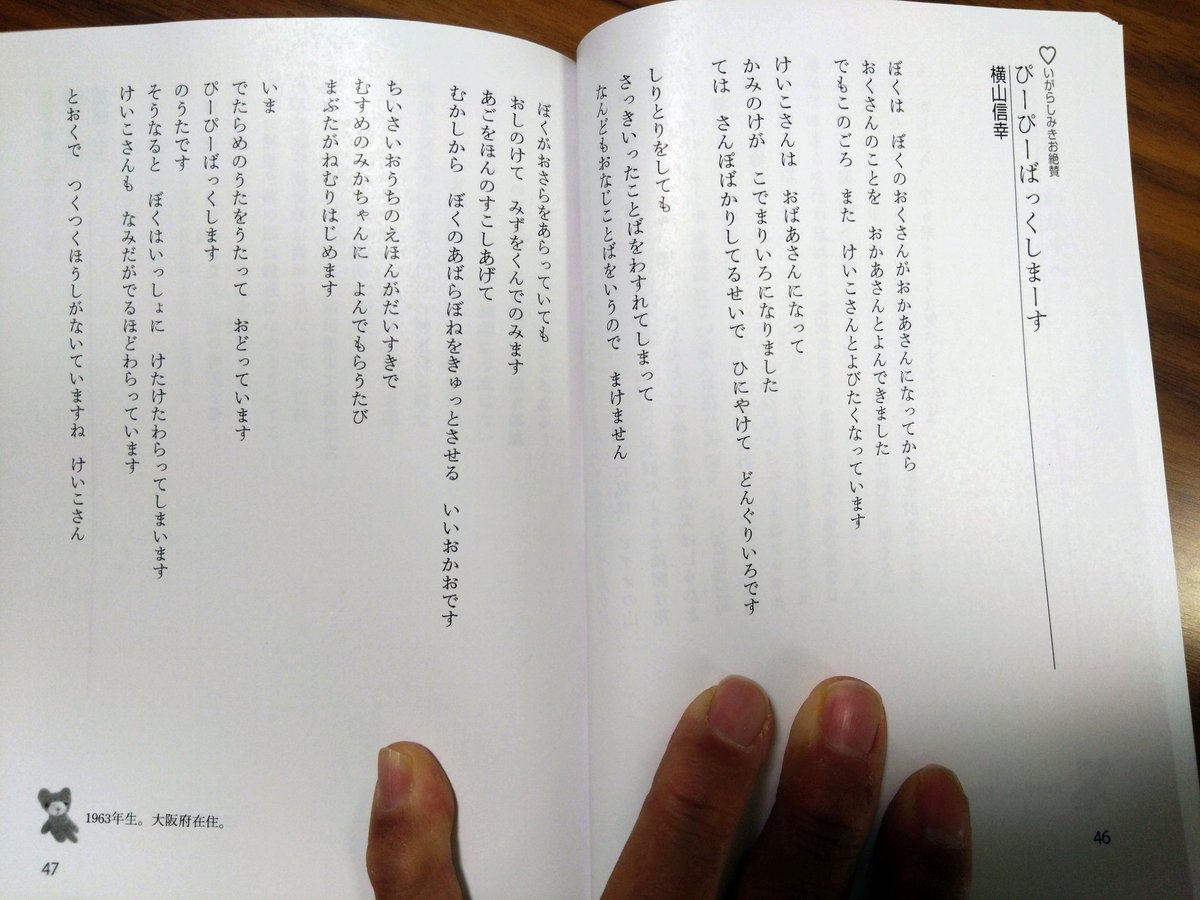 ♡いがらしみきお絶賛
ぴーぴーばっくしまーす
横山信幸
ぼくは　ぼくのおくさんがおかあさんになってから
おくさんのことを　おかあさんとよんできました
でもこのごろ　また　けいこさんとよびたくなっています
けいこさんは　おばあさんになって
かみのけが　こでまりいろになりました
ては　さんぽばかりしてるせいで　ひにやけて　どんぐりいろです
しりとりをしても
さっきいったことばをわすれてしまって
なんどもおなじことばをいうので　まけません
46
ぼくがおさらをあらっていても
おしのけて　みずをくんでのみます
あごをほんのすこしあげて
むかしから　ぼくのあばらぼねをきゅっとさせる　いいおかおです
ちいさいおうちのえほんがだいすきで
むすめのみかちゃんに　よんでもらうたび
まぶたがねむりはじめます
いま
でたらめのうたをうたって　おどっています
ぴーぴーばっくします
のうたです
そうなると　ぼくはいっしょに　けたけたわらってしまいます
けいこさんも　なみだがでるほどわらっています
とおくで　つくつくほうしがないていますね　けいこさん
1963年生。大阪府在住。
47